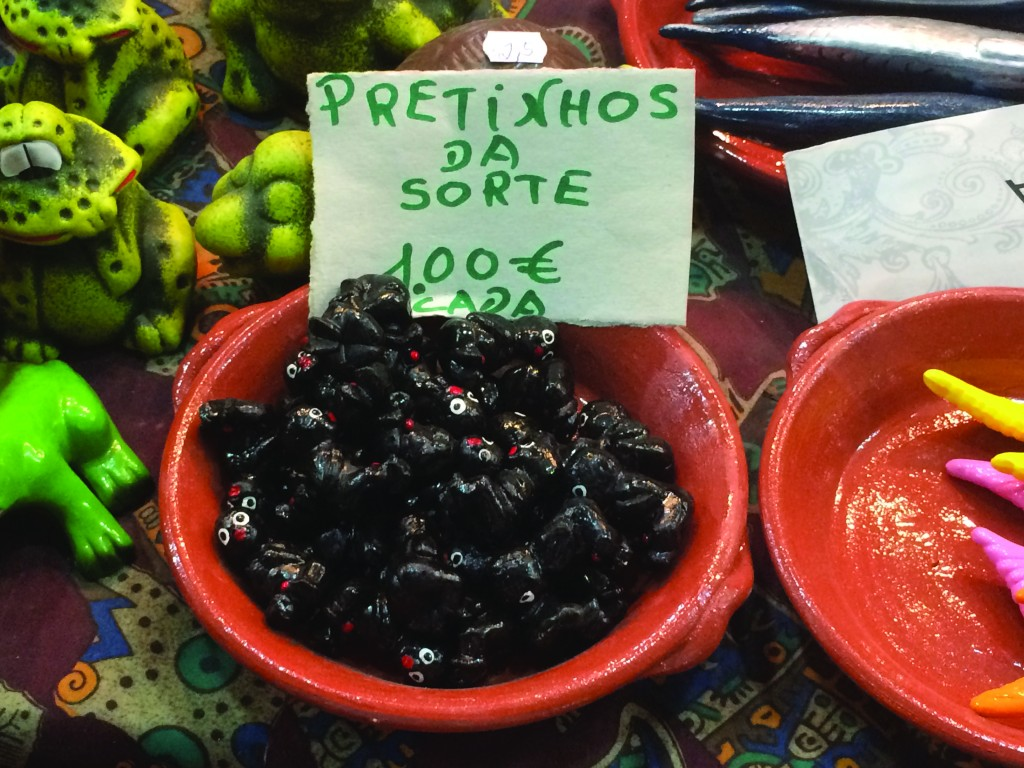 PRETINHOS
DA
SORTE
1.00 €
CADA